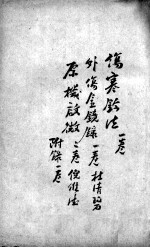 傷寒鈐法 一卷
外傷金鏡錄 一卷 杜清碧
原機啟微 二卷 倪維德
附錄 一卷